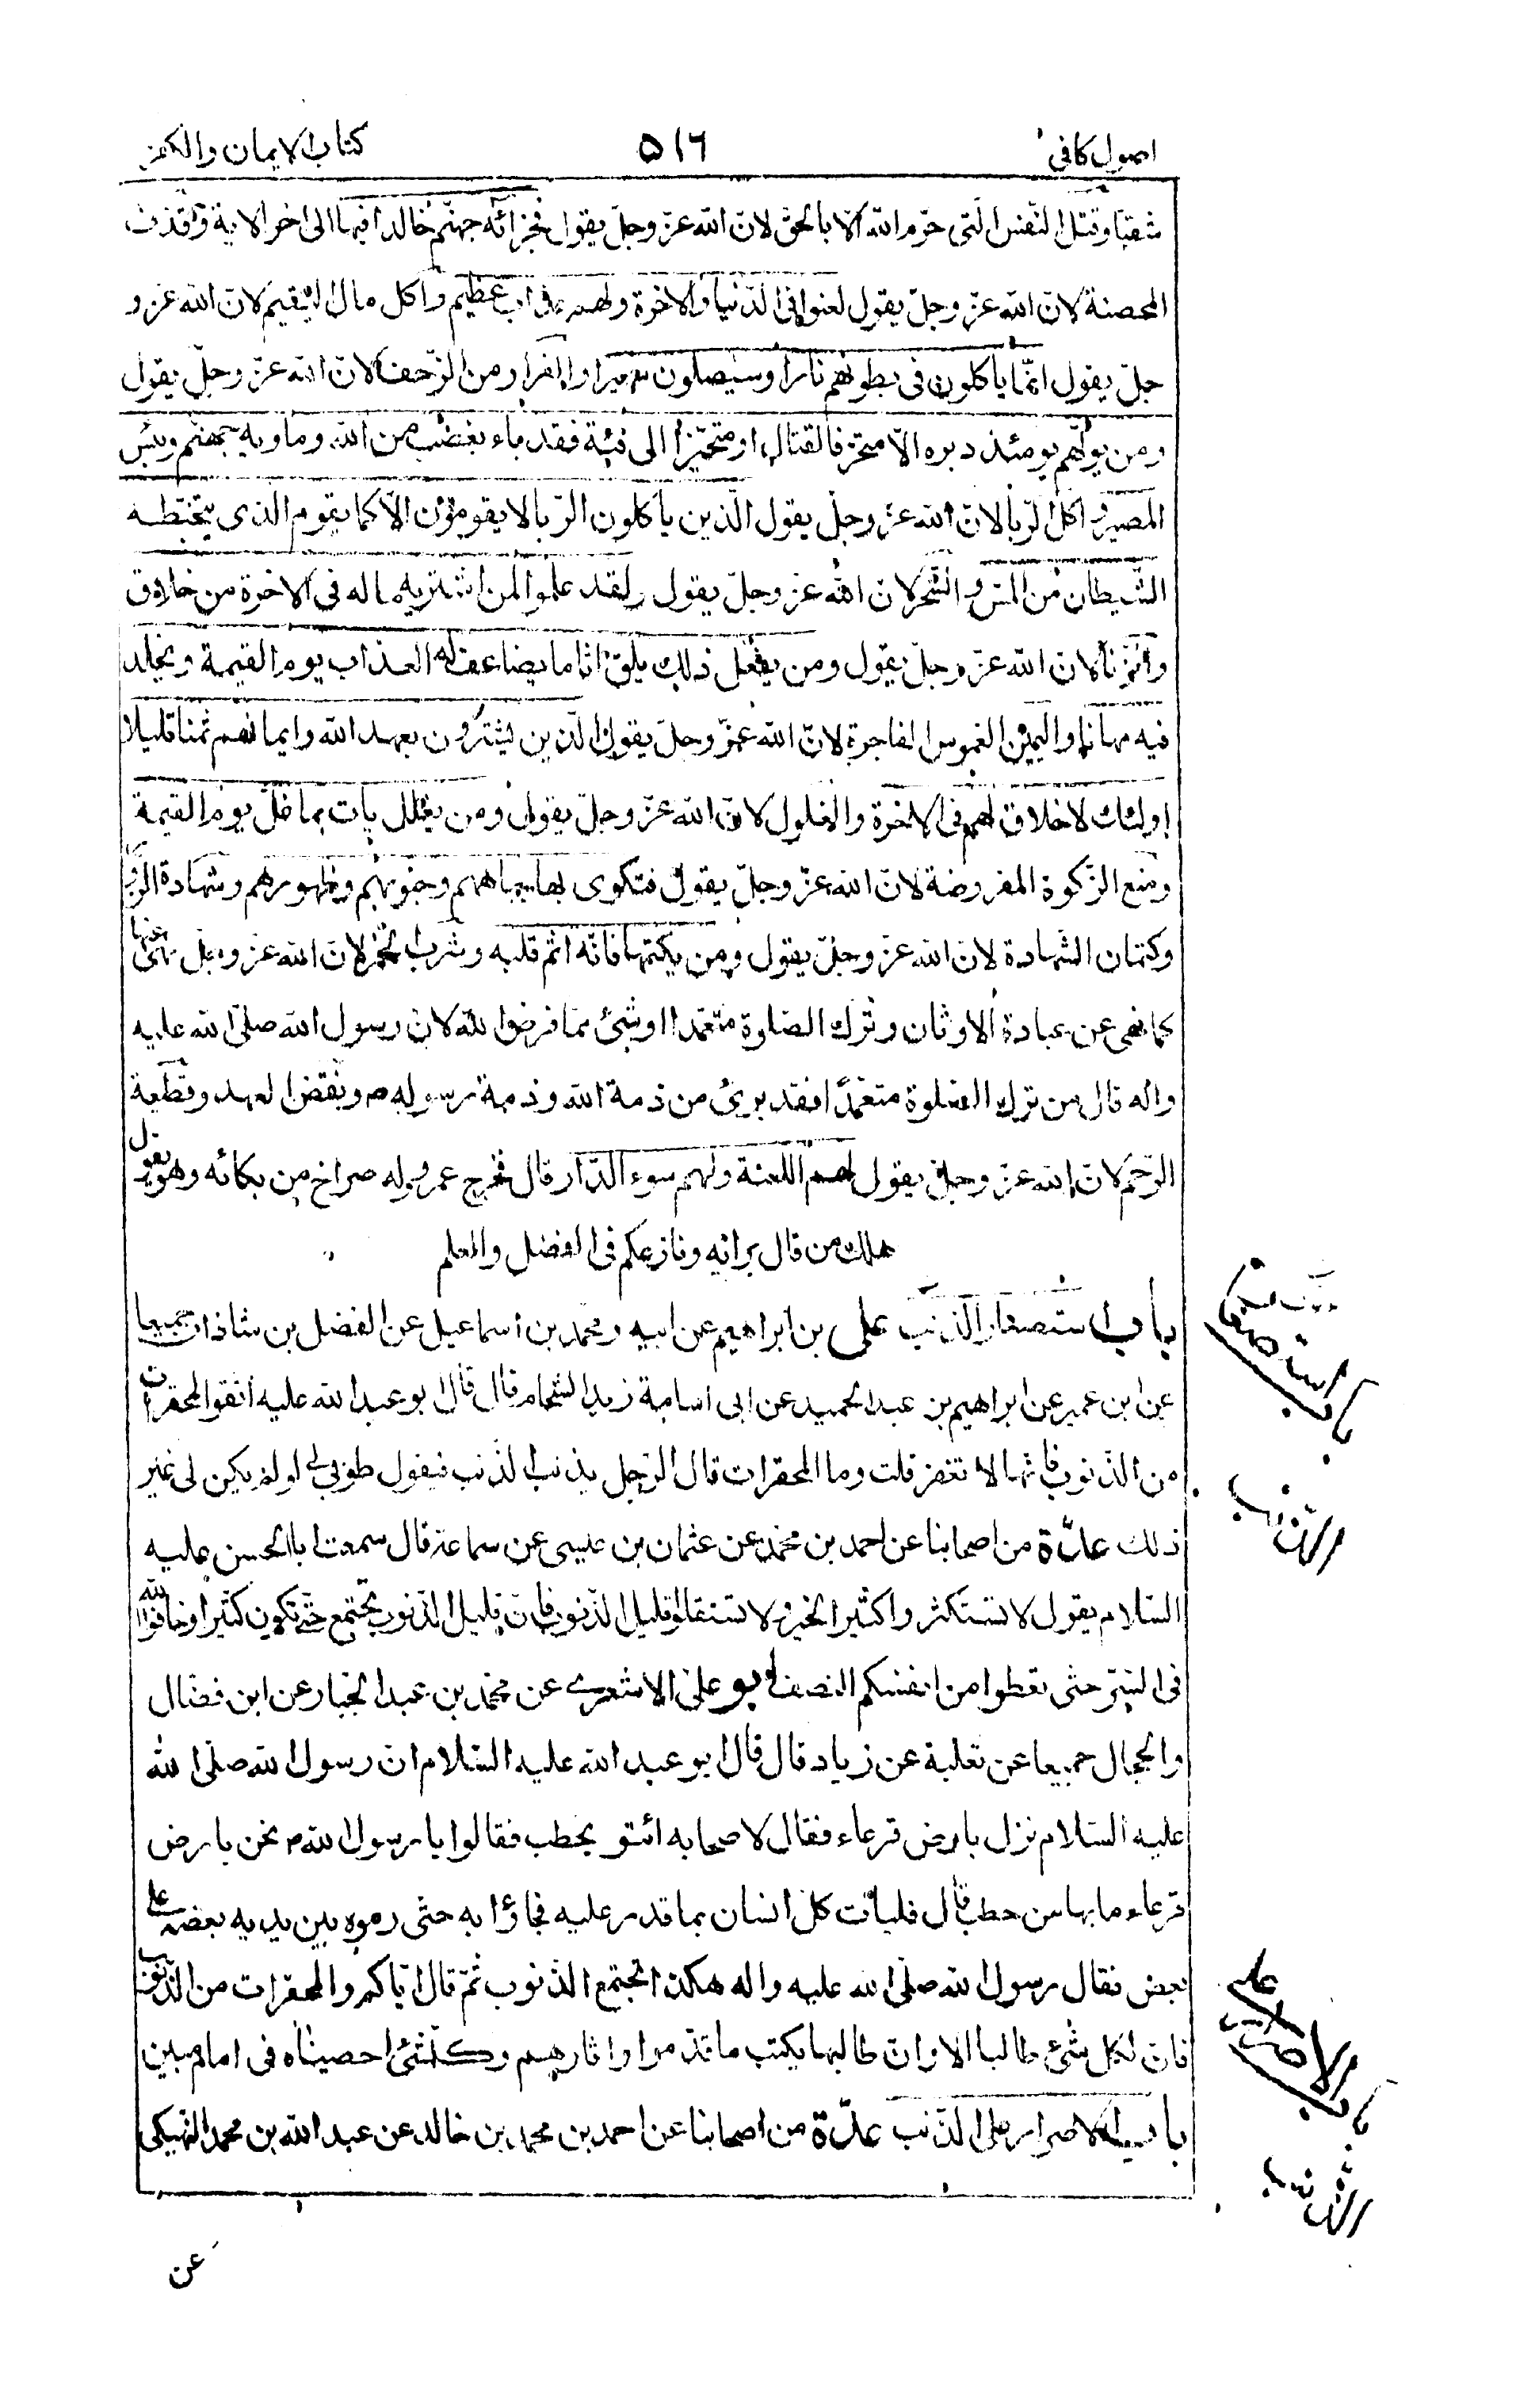 اصول كافى ٥١٦ كتاب الايمان والكفر
شقيا وقتل النّفس الّتى حرّم اللّه الّا بالحقّ لانّ اللّه عزّ وجلّ يقول فجزائه جهنّم خالدا فيها الى اخر الاية وقذف
المحصنة لانّ اللّه عزّ وجلّ يقول لعنوا فى الدّنيا والاخرة ولهم عذاب عظيم واكل مال اليتيم لانّ اللّه عزّ و
جلّ يقول انّما ياكلون فى بطونهم نارا وسيصلون سعيرا والفرار من الزّحف لانّ اللّه عزّ وجلّ يقول
ومن يولّهم يومئذ دبره الّا متحرّفا لقتال او متحيّزا الى فئة فقد باء بغضب من اللّه وماويه جهنّم وبئس
المصير واكل الرّبا لانّ اللّه عزّ وجلّ يقول الّذين ياكلون الرّبا لا يقومون الّا كما يقوم الذى يتخبّطه
الشّيطان من المسّ والسّحر لانّ اللّه عزّ وجلّ يقول ولقد علموا لمن اشتريه ماله فى الاخرة من خلاق
والزّنا لانّ اللّه عزّ وجلّ يقول ومن يفعل ذلك يلق اثاما يضاعف له العذاب يوم القيمة ويخلد
فيه مهانا واليمين الغموس الفاجرة لانّ اللّه عزّ وجلّ يقول الّذين يشترون بعهد اللّه وايمانهم ثمنا قليلا
اولئك لا خلاق لهم فى الاخرة والغلول لانّ اللّه عزّ وجلّ يقول ومن يغلل يات بما غلّ يوم القيمة
ومنع الزّكوة المفروضة لانّ اللّه عزّ وجلّ يقول فتكوى بها جباههم وجنوبهم وظهورهم وشهادة الزّور
وكتمان الشّهادة لانّ اللّه عزّ وجلّ يقول ومن يكتمها فانّه اثم قلبه وشرب الخمر لانّ اللّه عزّ وجلّ نهى عنها
كما نهى عن عبادة الاوثان وترك الصّلوة متعمّدا او شئ ممّا فرض اللّه لانّ رسول اللّه صلّى اللّه عليه
واله قال من ترك الصّلوة متعمّدا فقد برئ من ذمة اللّه وذمة رسوله ص ونقض العهد وقطيعة
الرّحم لانّ اللّه عزّ وجلّ يقول لهم اللعنة ولهم سوء الدّار قال فخرج عمرو وله صراخ من بكائه وهو يقول
هلك من قال برايه ونازعكم فى الفضل والعلم
باب استصغار الذنب على بن ابراهيم عن ابيه ومحمد بن اسماعيل عن الفضل بن شاذان جميعا
عن ابن عمير عن ابراهيم بن عبد الحميد عن ابى اسامة زيد الشحام قال قال ابو عبد اللّه عليه اتّقوا المحقرات
من الذّنوب فانّها لا تغفر قلت وما المحقرات قال الرّجل يذنب الذّنب فيقول طوبى لى لو لم يكن لى غير
ذلك عدّة من اصحابنا عن احمد بن محمّد عن عثمان بن عيسى عن سماعة قال سمعت ابا الحسن عليه
السّلام يقول لا تستكثروا كثير الخير ولا تستقلّوا قليل الذّنوب فانّ قليل الذّنوب يجتمع حتّى تكون كثيرا وخافوا اللّه
فى السّر حتّى تعطوا من انفسكم النصف ابو على الاشعرى عن محمّد بن عبد الجبار عن ابن فضّال
والحجال جميعا عن ثعلبة عن زياد قال قال ابو عبد اللّه عليه السّلام انّ رسول اللّه صلّى اللّه
عليه السّلام نزل بارض قرعاء فقال لاصحابه ائتو بحطب فقالوا يا رسول اللّه ص نحن بارض
قرعاء ما بها من حطب قال فليات كلّ انسان بما قدر عليه فجاؤا به حتّى رموه بين يديه بعضه على
بعض فقال رسول اللّه صلّى اللّه عليه واله هكذا تجتمع الذّنوب ثمّ قال ايّاكم والمحقرات من الذّنوب
فانّ لكلّ شئ طالبا الا وانّ طالبها يكتب ما قدّموا واثارهم وكلّ شئ احصيناه فى امام مبين
باب الاصرار على الذنب عدّة من اصحابنا عن احمد بن محمد بن خالد عن عبد اللّه بن محمد النهيكى
عن
باب استصغار
الذنب
باب الاصرار على
الذنب